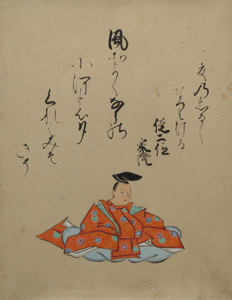 風そよくならの
小河の夕
くれはみそ
きそ
夏乃しるし
なりける
従二位
家隆